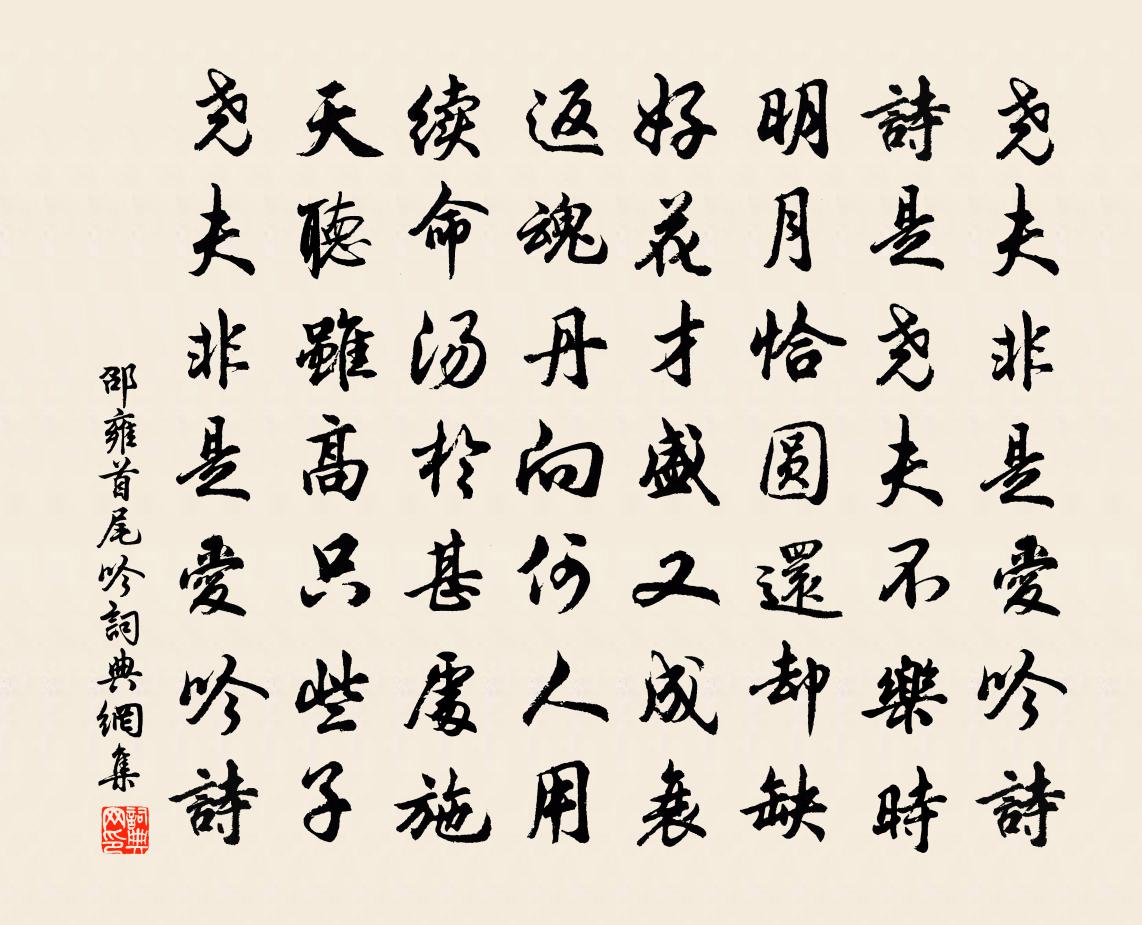 尧夫非是愛吟詩
詩是尧夫不樂時
明月恰圆還却缺
好花才盛又成衰
返魂丹向何人用
续命汤於甚處施
天聽雖高只些子
尧夫非是愛吟詩
邵雍首尾吟詞典網集
詞典
网印